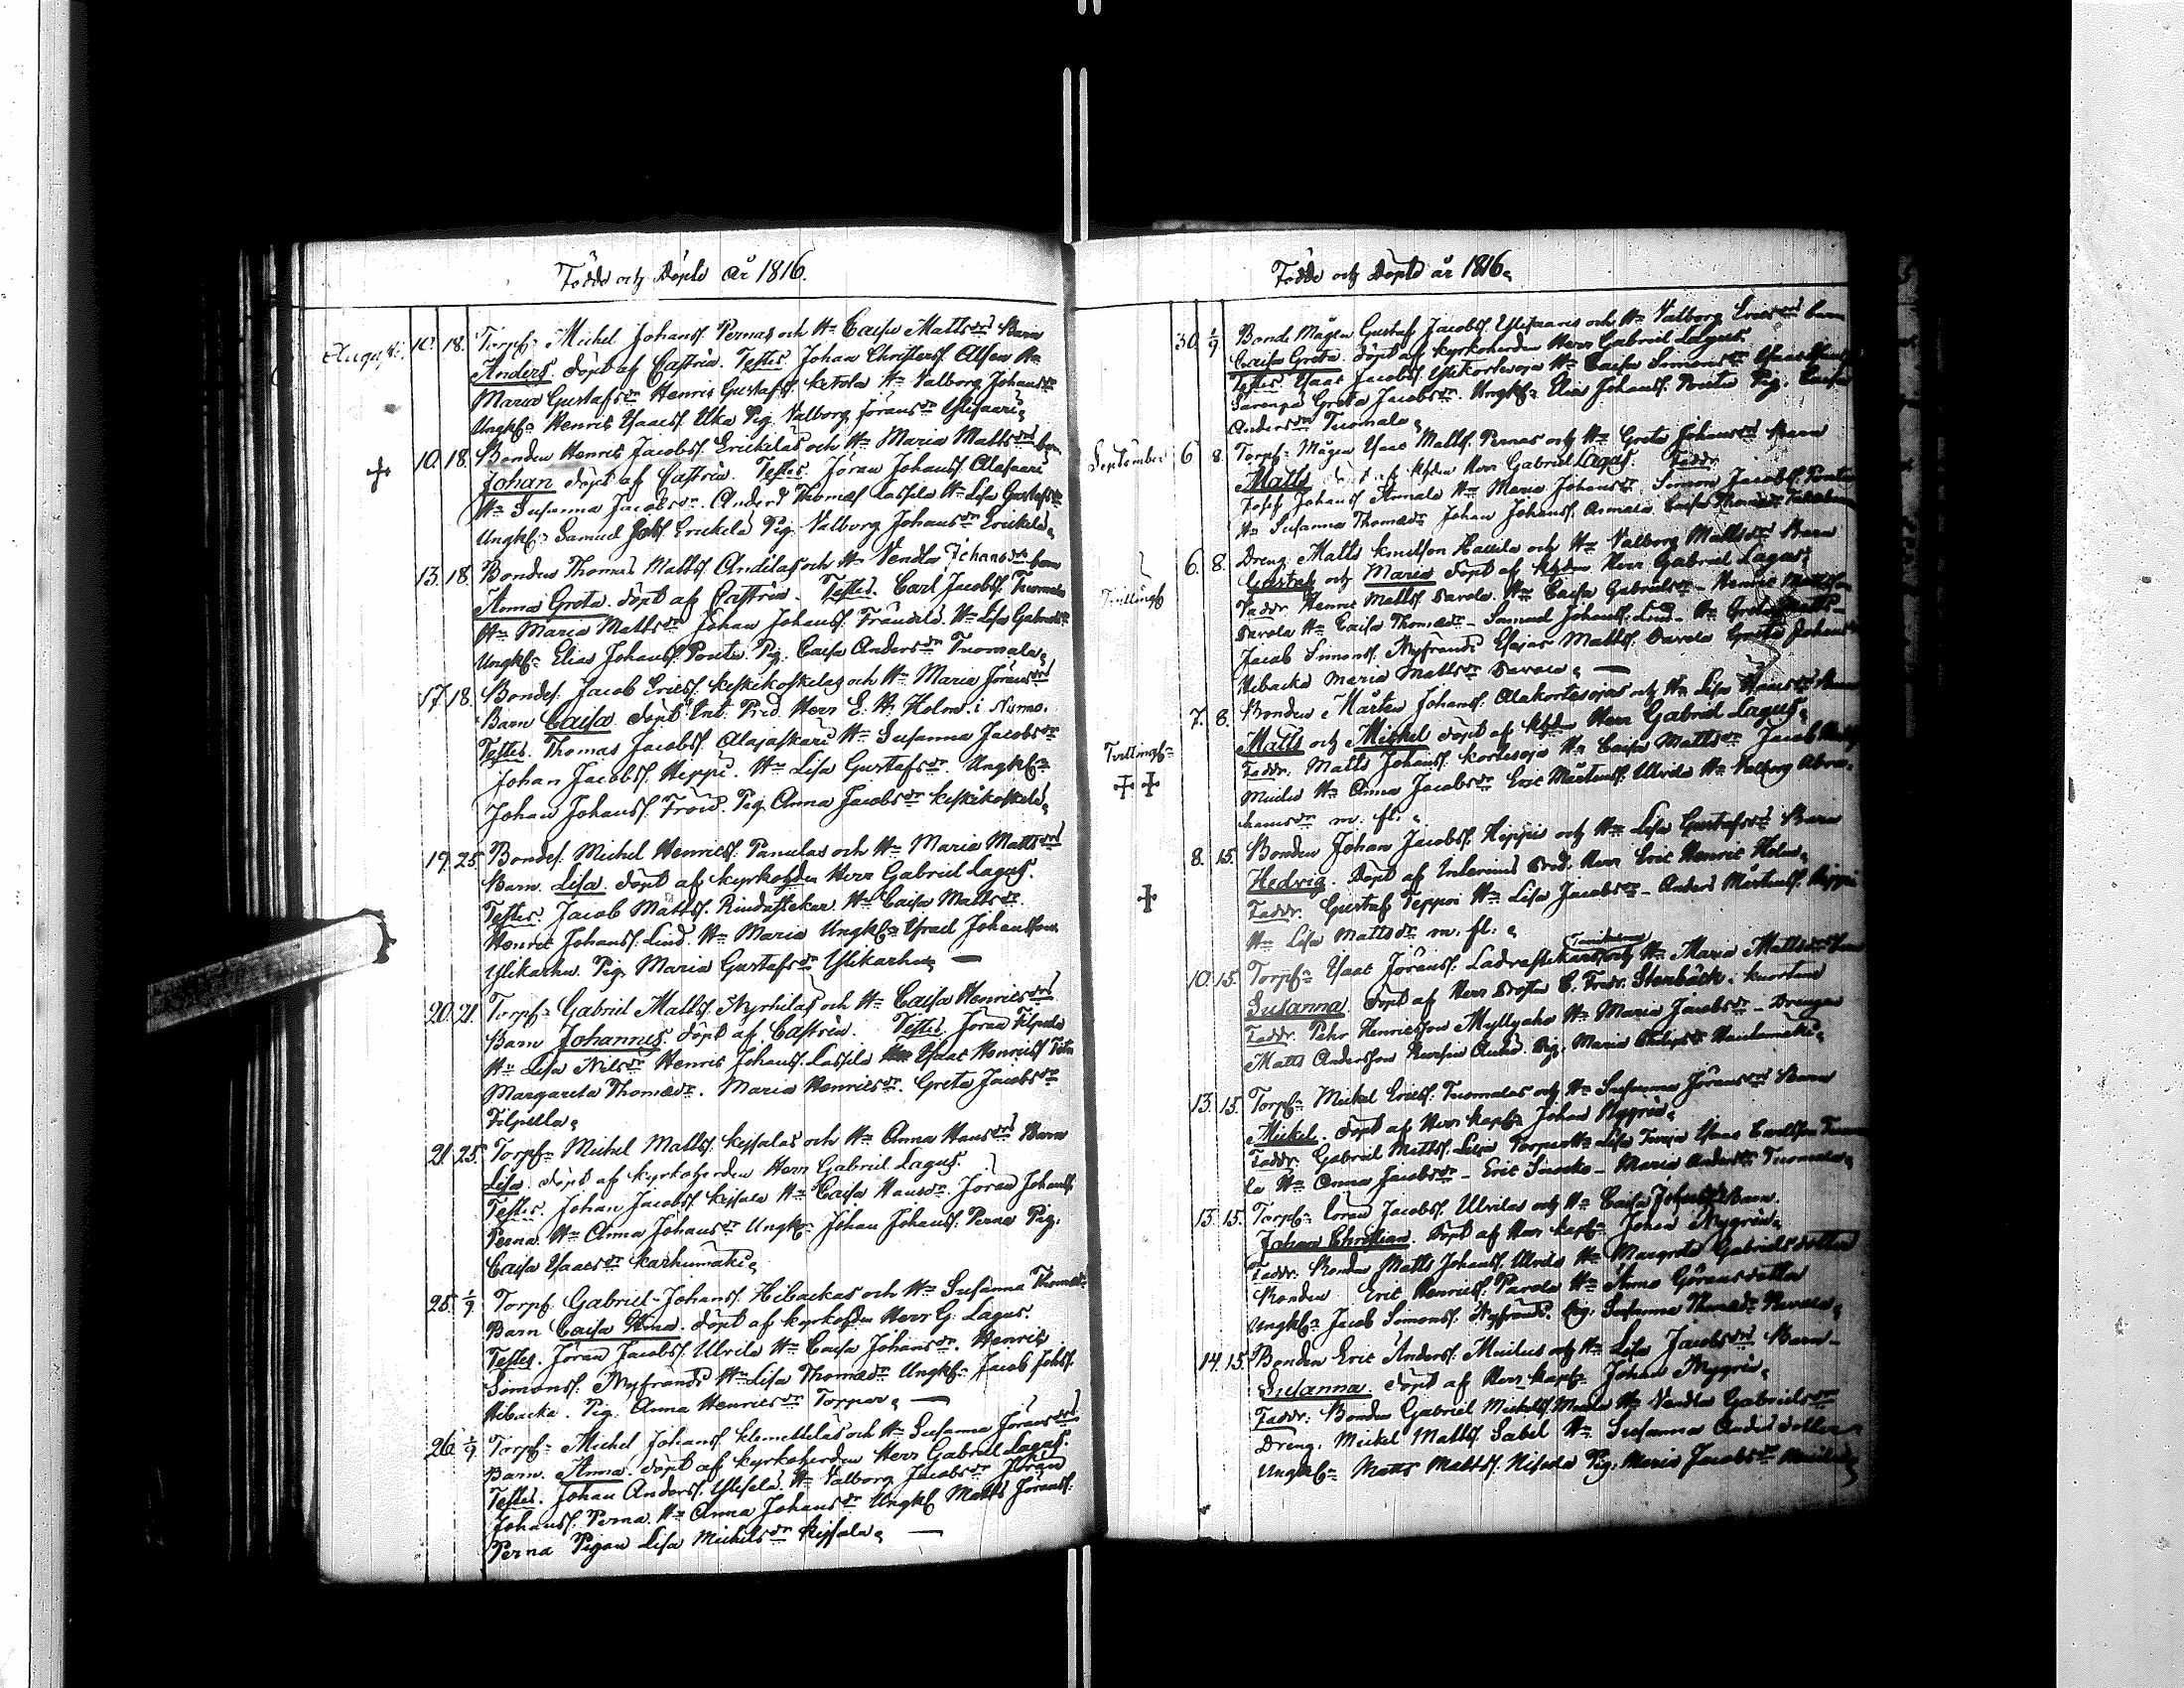 Födde och Döpte År 1816.
Augusti. 10. 18. Torpr: Michel Johanss. Pernas och Hu Caisa Mattsdrs Barn
Anders. döpt af Castrén. Testes. Johan Christerss. Hu
Maria Gustafsdr Henric Gustafss. Ketola Hu Valborg Johansdr
Ungkl: Henric Isaacs. Uka Pig. Valborg Jöransdr Ylisaari
10. 18. Bonden Henric Jacobss. Erickilas och Hu Maria Mattsdrs barn
Johan döpt af Castrén. Testes. Jöran Johanss. Alasaari
Hu Susanna Jacobsdr. Anders Thomass Lassila Hu Lisa Gustafsdr
Ungkl: Samuel Johss. Erickilä Pig. Valborg Johansdr Erickilä
13. 18. Bonden Thomas Mattss. Andilas och Hu Vendla Johansdrs barn
Anna Greta. döpt af Castrén. Testes. Carl Jacobss. Tuomala
Hu Maria Mattsdr Johan Johanss. Hu Lisa Gabrielsdr
Ungkl: Elias Johanss. Pouttu. Pig. Caisa Andersdr Tuomala
17. 18. Bondes. Jacob Ericss. Keskikoskelas och Hu Maria Jöransdrs
Barn Caisa. döpt Int. Pred. Herr E. H. Holm. i Nurmo.
Testes. Thomas Jacobss. Alajaskari Hu Susanna Jacobsdr
Johan Jacobss. Heppi. Hu Lisa Gustafsdr. Ungkl:
Johan Johanss. Pig. Anna Jacobsdr Keskikoskela
19. 25. Bondes. Michel Henricss. Panulas och Hu Maria Mattsdrs
Barn. Lisa. döpt af Kyrkohden Herr Gabriel Lagus.
Testes. Jacob Mattss. Rindastekar Hu Caisa Mattsdr.
Henric Johanss. Lind. Hu Maria Ungkl: Israel Johansson
Ylikarhu. Pig. Maria Gustafsdr Ylikarhu
20. 21. Torpr: Gabriel Mattss. Nyrhilas och Hu Caisa Henricsdrs
Barn Johannes. döpt af Castrén. Testes. Jöran Filpula
Hu Lisa Nilsdr Henric Johanss. Lassila Isaac Henricss
Margareta Thomædr. Maria Henricsdr. Greta Jacobsdr
Filpula
21. 25. Torpr: Michel Mattss. Kyssalas och Hu Anna Hansdrs Barn
Lisa. döpt af Kyrkoherden Herr Gabriel Lagus.
Testes. Johan Jacobss. Kyssala Hu Caisa Hansdr. Jöran Johanss.
Perna. Hu Anna Johansdr Ungkl: Johan Johanss. Perna Pig.
Caisa Isaacsdr Karhumäki
25. 1/9 Torpr. Gabriel Johanss. Hibackas och Hu Susanna Thomædrs
Barn Caisa Stina. döpt af Kyrkohden Herr G. Lagus.
Testes. Jöran Jacobss. Ulvila Hu Caisa Johansdr. Henric
Simonss. Nyfrands Hu Lisa Thomædr Ungkl: Jacob Johss.
Hibacka. Pig. Anna Henricsdr Torpar
26. 1/9 Torpr: Michel Johanss. Klemettiläs och Hu Susanna Jöransdrs
Barn. Anna. döpt af Kyrkoherden Herr Gabriel Lagus.
Testes. Johan Anderss. Ylisela. Hu Valborg Jacobsdr Jöran
Johanss. Perna. Hu Anna Johansdr Ungkl Matts Jöranss.
Perna Pigan Lisa Michelsdr Kyssala
Födde och Döpte år 1816.
30. 1/9 Bonde Mågen Gustaf Jacobss. Ylisaaris och Hu Valborg Ericsdrs barn
Caisa Greta. döpt af Kyrkoherden Herr Gabriel Lagus.
Testes. Isaac Jacobss. Ylikortesoja Hu Caisa Simonsdr
Greta Jacobsdr. Ungkl: Elias Johanss. Pouttu Pig. Caisa
Andersdr Tuomala
September 6 8. Torpr: Mågen Isaac Mattss. Pernas och Hu Greta Johansdrs Barn
Matts döpt af Khden Herr Gabriel Lagus. Faddr.
Josef Johanss Annala Hu Maria Johansdr. Simon Jacobss. Pouttu
Hu Susanna Thomædr Johan Johanss. Annala. Caisa Thomædr
Tvillingr 6. 8. Dreng. Matts Knutson Haukila och Hu Valborg Mattsdrs Barn
Gustaf och Maria döpt af Khden Herr Gabriel Lagus.
Faddr. Henric Mattss. Pavola. Hu Caisa Gabrielsdr. Henric Mattsson
Pavola Hu Caisa Thomædr. Samuel Johanss. Lind. Hu Greta Mattsdr
Jacob Simonss. Nyfrands Esaias Mattss. Pavola Greta Johansdr
Hibacka Maria Mattsdr Pavola
Tvillingr 7. 8. Bonden Mårten Johanss. Alakortesojas och Hu Lisa Isaacsdrs Barn
Matts och Michel döpt af Khden Herr Gabriel Lagus.
Faddr. Matts Johanss. Kortesoja Hu Caisa Mattsdr Jacob
Hu Anna Jacobsdr Eric Mårtenss. Ulvila Hu Valborg Abra-
hamsdr m. fl.
8. 15. Bonden Johan Jacobss. Heppis och Hu Lisa Gustafsdrs Barn
Hedvig. Döpt af Interims Pred. Herr Eric Henric Holm.
Faddr. Gustaf Teppoi Hu Lisa Jacobsdr. Anders Mårtenss. Heppi
Hu Lisa Mattsdr m. fl.
10. 15. Torpr: Isaac Jöranss. Ladrastekars och Hu Maria Mattsdrs Barn
Susanna. döpt af Herr Prosten E. Fredr. Stenbäck i Kuortane
Faddr. Pehr Henricsson Myllyaho Hu Maria Jacobsdr. Drengen
Matts Andersson Pig. Maria Philipsdr Hautamäki
13. 15. Torpr: Mickel Ericss. Tuomalas och Hu Susanna Jöransdrs Barn
Mickel. döpt af Herr Kapl: Johan Nygrén.
Faddr. Gabriel Mattss. Hu Lisa Isaac Carlsson Tuoma-
la Hu Anna Jacobsdr. Eric Maria Andersdr Tuomala
13. 15. Torpr: Jöran Jacobss. Ulvilas och Hu Caisa Johansdrs Barn.
Johan Christian. döpt af Herr Kapl: Johan Nygrén.
Faddr: Bonden Matts Johanss. Ulvila Hu Margreta Gabrielsdotter
Bonden Eric Henricss. Pavola Hu Anna Göransdotter
Ungkl: Jacob Simonss. Nyfrands. Pig. Susanna Thomædr
14. 15. Bonden Eric Anderss. Muilus och Hu Lisa Jacobsdrs Barn
Susanna. döpt af Herr Kapl: Johan Nygrén.
Faddr: Bonden Gabriel Mickelss. Hu Vendla Gabrielsdr
Dreng. Mickel Mattss. Sabel Hu Susanna Andersdotter
Ungkl: Matts Mattss. Pig. Maria Jacobsdr